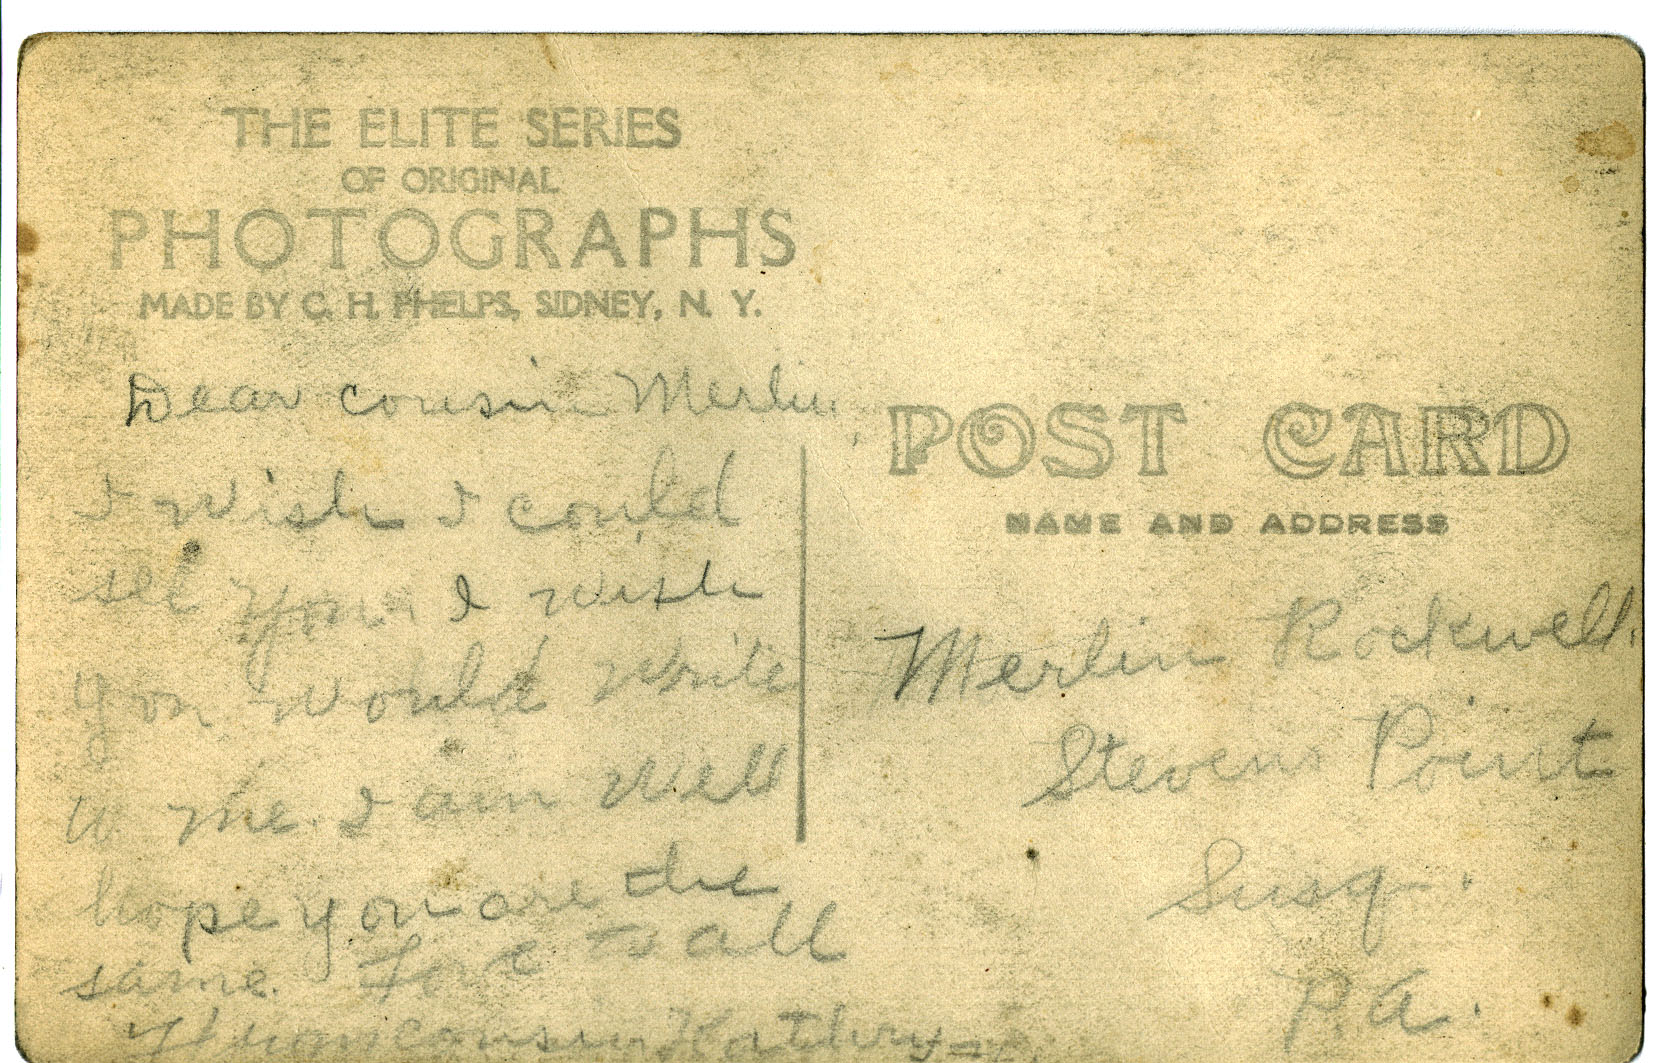 THE ELITE SERIES
OF ORIGINAL
PHOTOGRAPHS
MADE BY C. H. PHELPS, SIDNEY, N. Y.
Dear cousin Merlin,
I wish I could
see you. I wish
you would write
to me. I am well
hope you are the
same. to all
cousin Kathryn
POST CARD
NAME AND ADDRESS
Merlin Rockwell.
Stevens Point
Susq.
P.A.